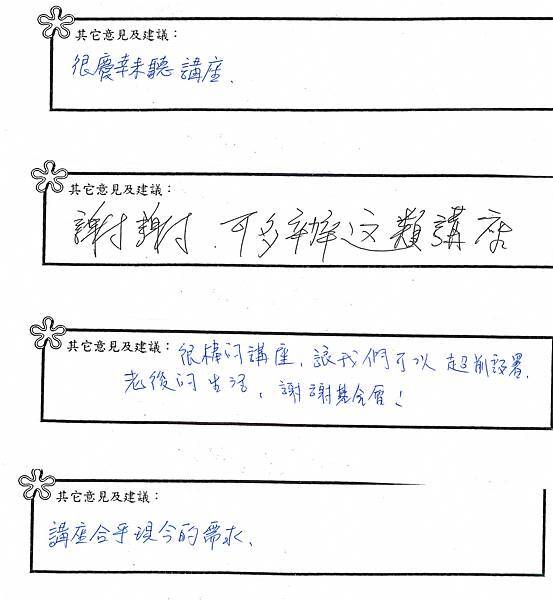 其它意見及建議：
很慶幸來聽講座.
其它意見及建議：
謝謝.可多辦這類講座
其它意見及建議：很棒的講座，讓我們可以超前部署.
老後的生活，謝謝基金會！
其它意見及建議：
講座合乎現今的需求.